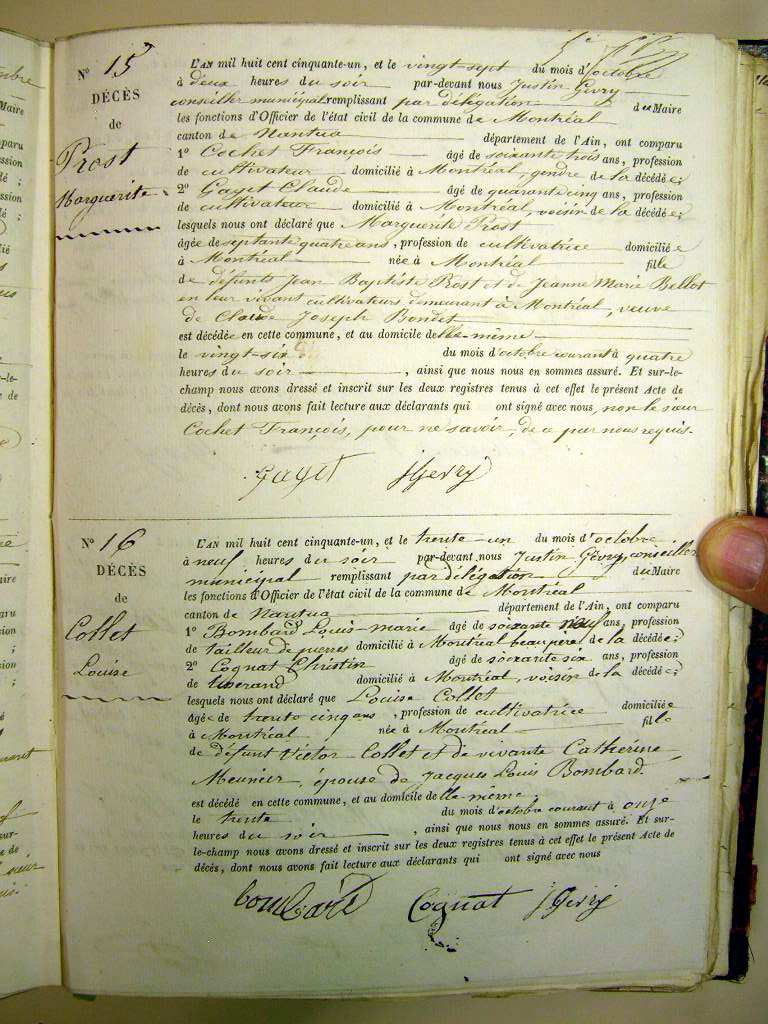 Nº 15
DÉCÈS
de
Prost
Marguerite
L'AN mil huit cent cinquante-un, et le vingt sept du mois d'octobre
à deux heures du soir par-devant nous Justin Gevry
conseiller municipal remplissant par délégation du Maire
les fonctions d'Officier de l'état civil de la commune de Montréal
canton de Nantua département de l'Ain, ont comparu
1º Cochet François âgé de soixante trois ans, profession
de cultivateur domicilié à Montréal, gendre de la décédée;
2º Gayet Claude âgé de quarante cinq ans, profession
de cultivateur domicilié à Montréal, voisin de la décédée;
lesquels nous ont déclaré que Marguerite Prost
âgée de septante quatre ans, profession de cultivatrice domiciliée
à Montréal née à Montréal fille
de défunts Jean Baptiste Prost et de Jeanne Marie Bellot
en leur vivant cultivateurs demeurant à Montréal, veuve
de Claude Joseph Bondet
est décédée en cette commune, et au domicile d'elle-même
le vingt-six du mois d'octobre courant à quatre
heures du soir, ainsi que nous nous en sommes assuré. Et sur-le-
champ nous avons dressé et inscrit sur les deux registres tenus à cet effet le présent Acte de
décès, dont nous avons fait lecture aux déclarants qui ont signé avec nous, non le sieur
Cochet François, pour ne savoir, de ce par nous requis.
Gayet JGevry
Nº 16
DÉCÈS
de
Collet
Louise
L'AN mil huit cent cinquante-un, et le trente-un du mois d'octobre
à neuf heures du soir par-devant nous Justin Gevry, conseiller
municipal remplissant par délégation du Maire
les fonctions d'Officier de l'état civil de la commune de Montréal
canton de Nantua département de l'Ain, ont comparu
1º Bombard Louis-marie âgé de soixante neuf ans, profession
de tailleur de pierres domicilié à Montréal beaupère de la décédée;
2º Cognat Christin âgé de soixante six ans, profession
de tisserand domicilié à Montréal, voisin de la décédée;
lesquels nous ont déclaré que Louise Collet
âgée de trente cinq ans, profession de cultivatrice domiciliée
à Montréal née à Montréal fille
de défunt Victor Collet et de vivante Catherine
Meunier, épouse de Jacques Louis Bombard.
est décédé en cette commune, et au domicile d'elle-même,
le trente du mois d'octobre courant à onze
heures du soir, ainsi que nous nous en sommes assuré. Et sur-
le-champ nous avons dressé et inscrit sur les deux registres tenus à cet effet le présent Acte de
décès, dont nous avons fait lecture aux déclarants qui ont signé avec nous
bombard Cognat JGevry